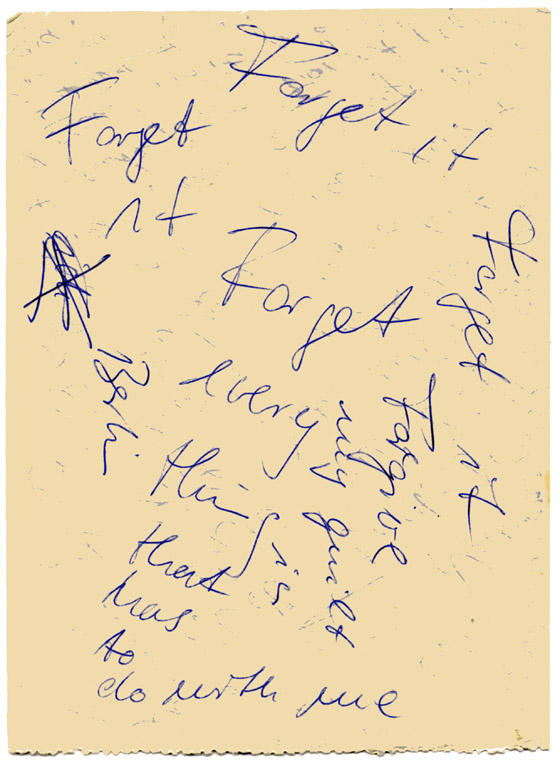 Forget it
Forget
it
Forget it
Forget
every
thing is
that
has
to
do with me
Forgive
my guilt